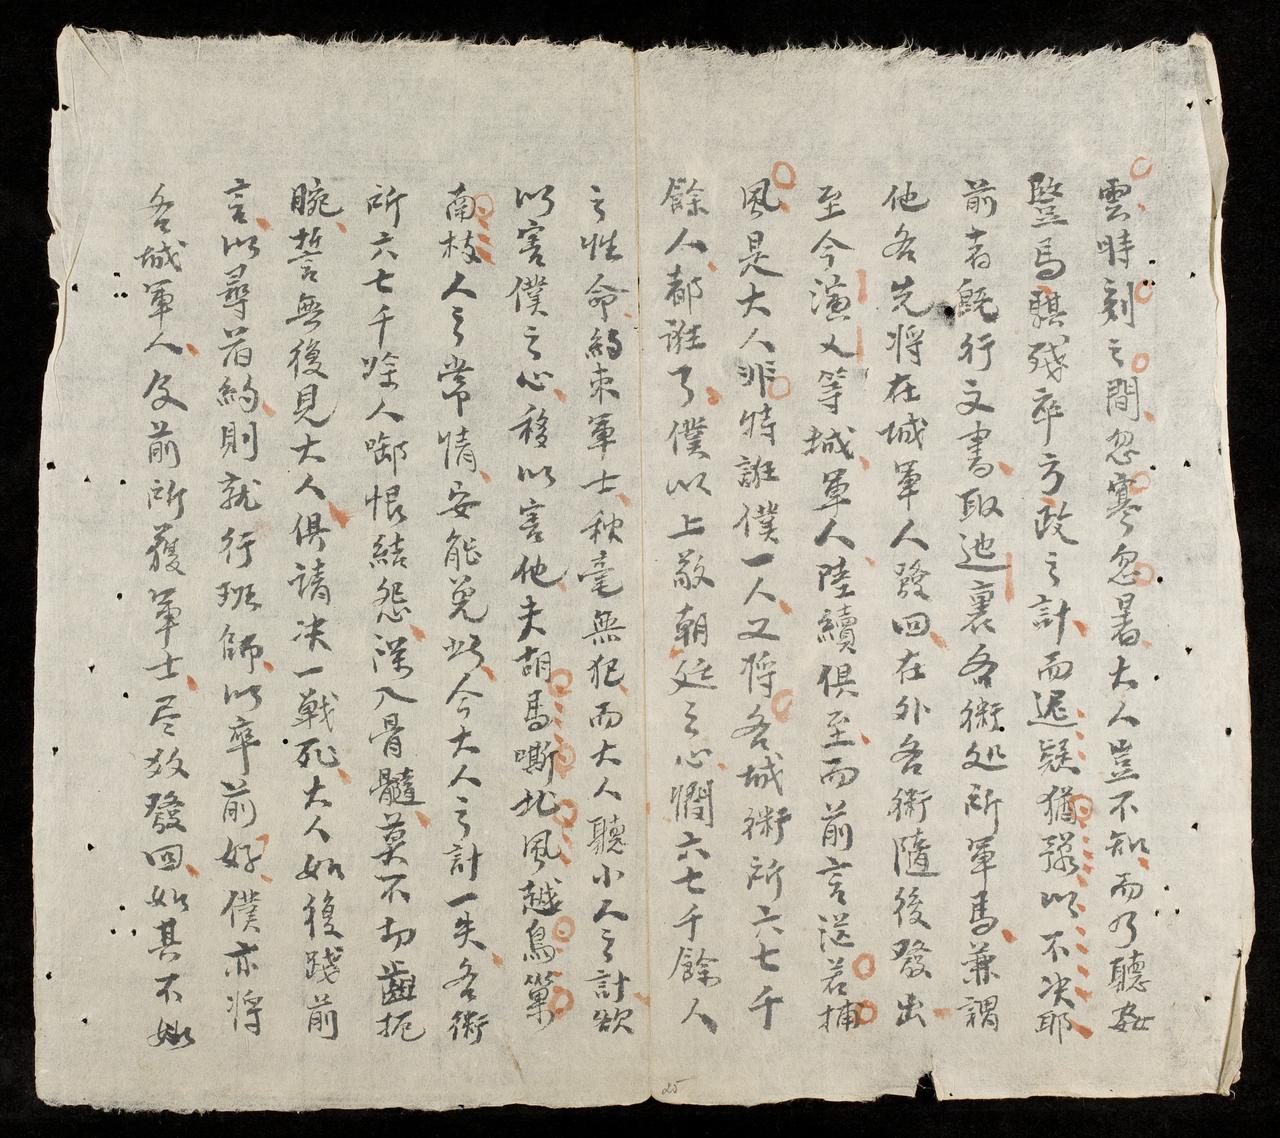 雲時刻之間忽寒忽暑大人豈不知而乃聽姦
豎馬騏殘卒方政之計而遲疑猶豫以不決耶
前者既行文書取迆裹各衛處所軍馬兼謂
他各先將在城軍人發回在外各衛隨後發出
至今演乂等城軍人陸續俱至而前言逆若捕
風是大人非特誑僕一人又將各城衛所六七千
餘人都誑了僕以上敬朝廷之心憫六七千餘人
之性命約束軍士秋毫無犯而大人聽小人之計欲
以害僕之心移以害他夫胡馬嘶北風越鳥巢
南枝人之常情安能免此今大人之計一失各衛
所六七千餘人啣恨結怨深入骨髓莫不切齒扼
腕誓無復見大人俱請決一戰死大人如復踐前
言以尋舊約則就行班師以率前好僕亦將
各城軍人及前所獲軍士盡放發回如其不如
25